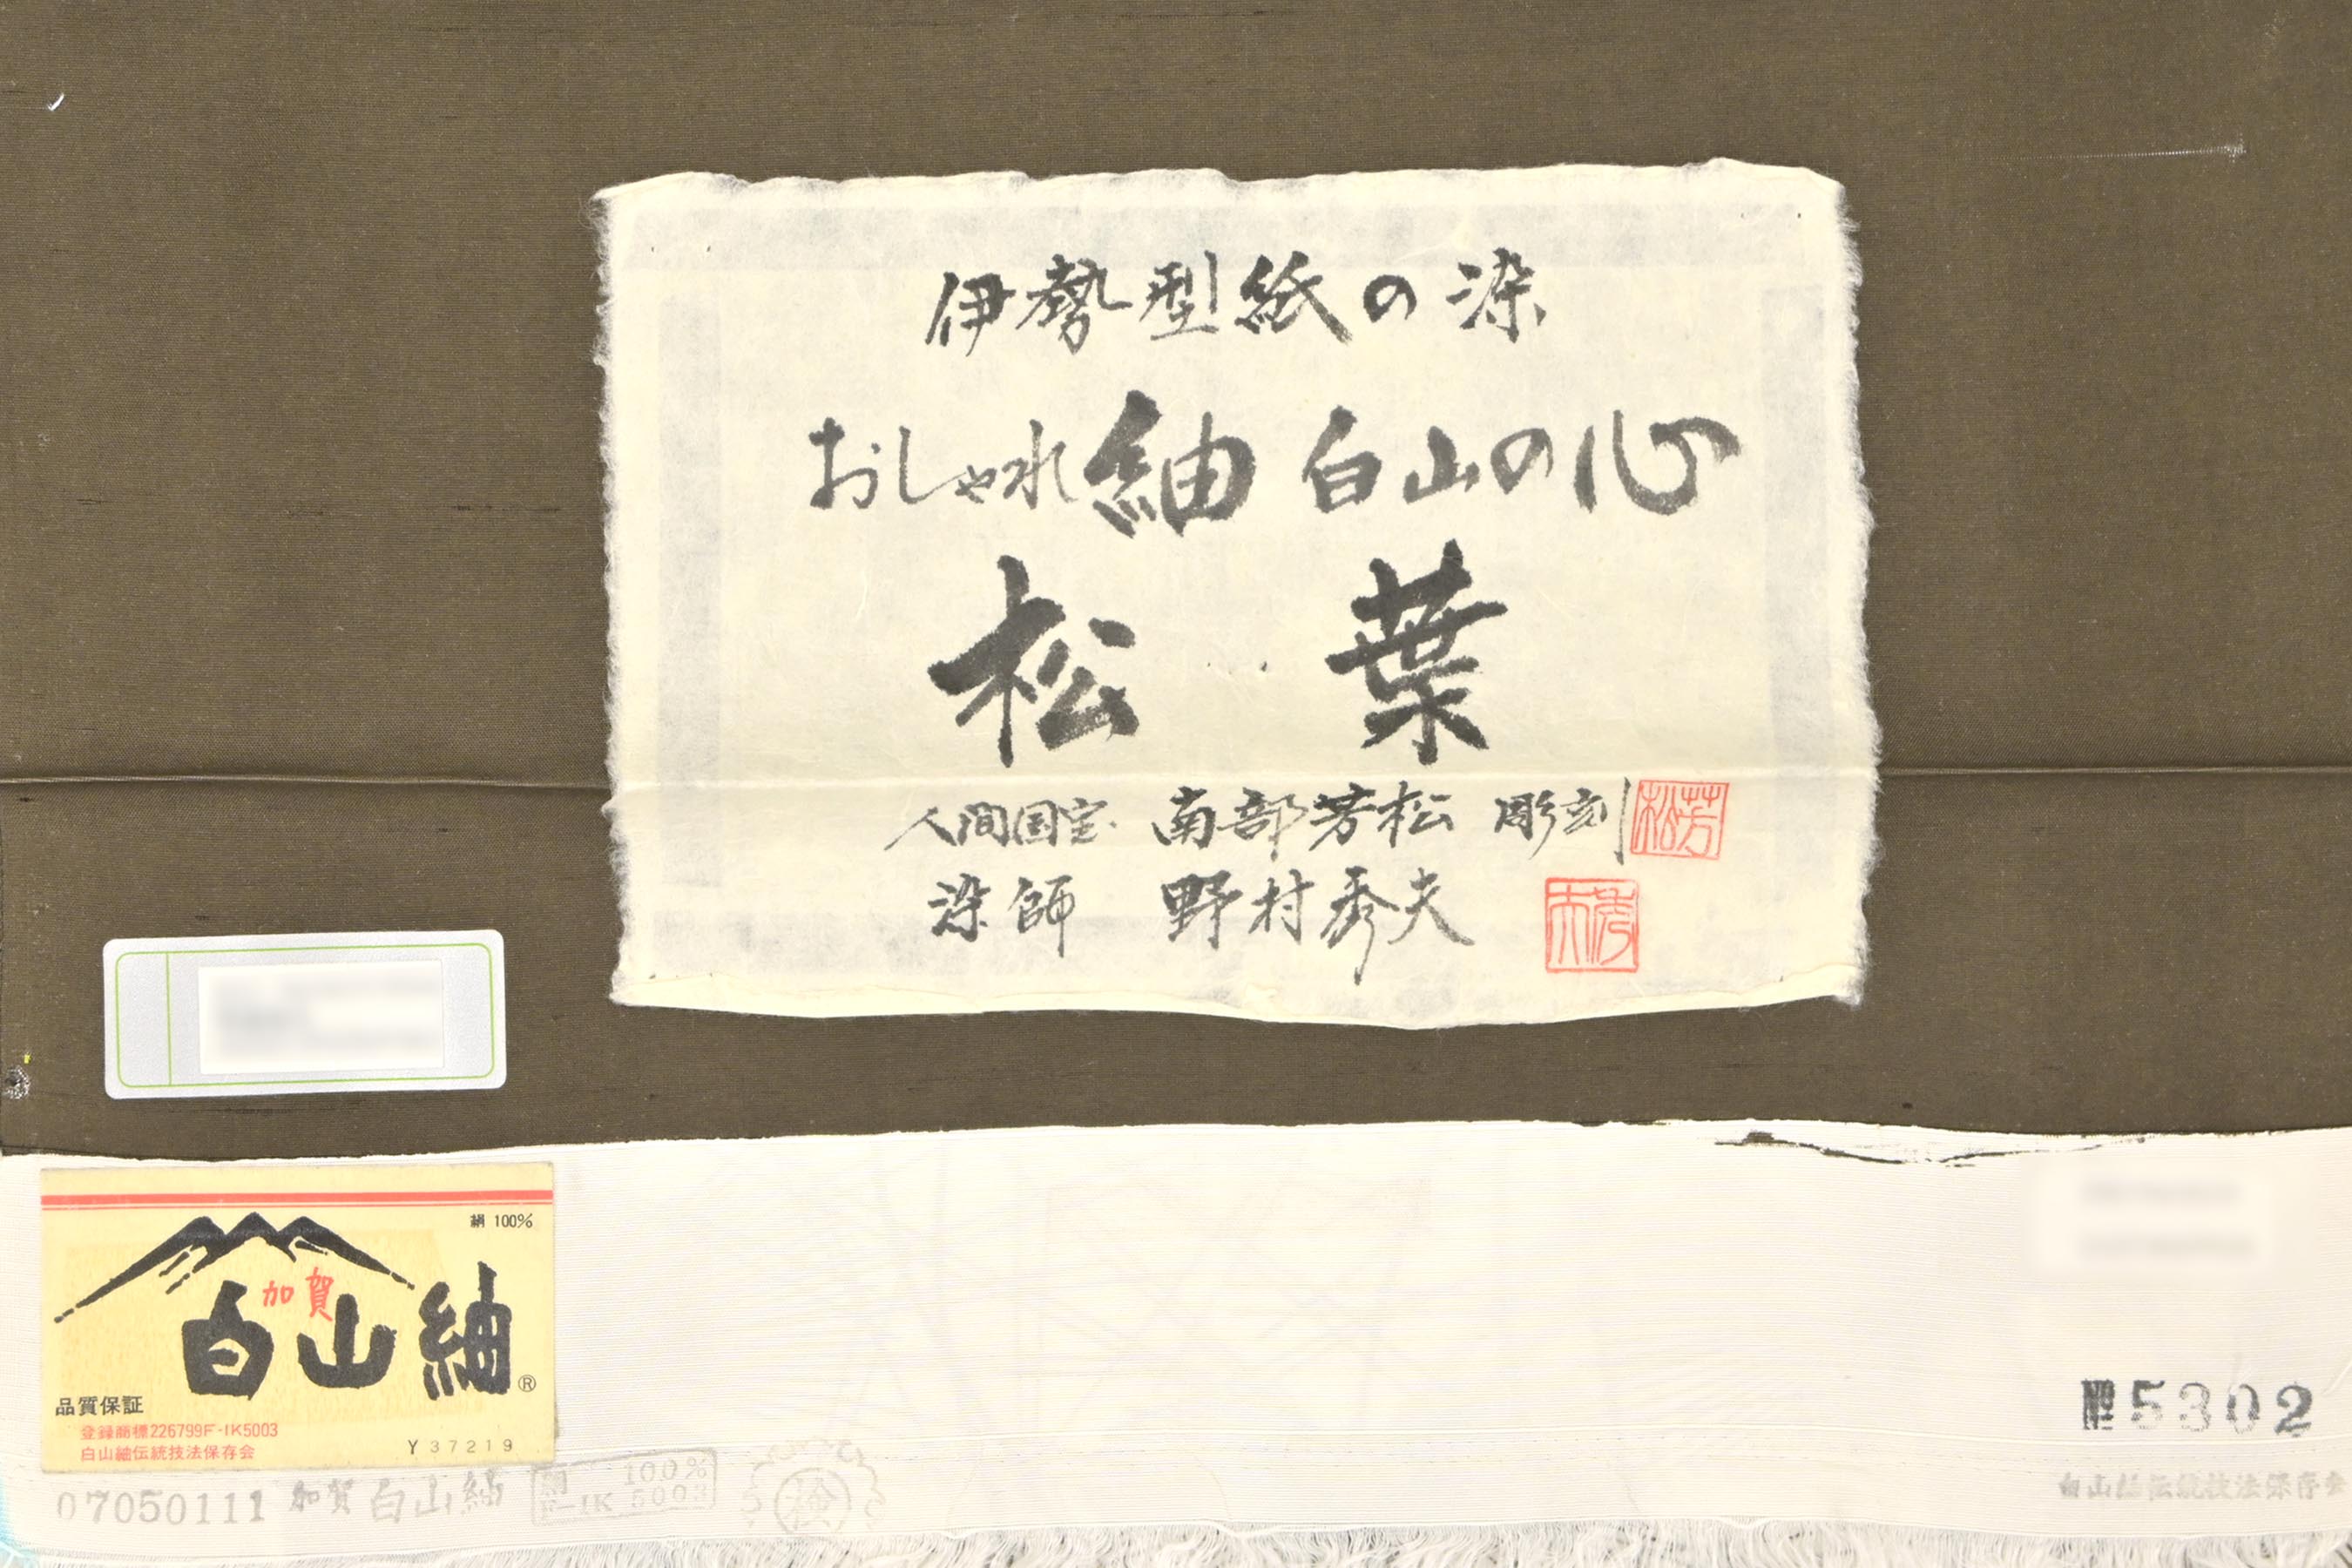 伊勢型紙の染
おしゃれ紬 白山の心
松葉
人間国宝 南部芳松 彫刻
芳松
染師 野村秀夫
秀夫
絹 100%
加賀
白山紬®
品質保証
登録商標226799F-IK5003
白山紬伝統技法保存会
Y 37219
5302
07050111 加賀 白山紬
絹 100%
F-IK 5003
検
白山紬伝統技法保存会